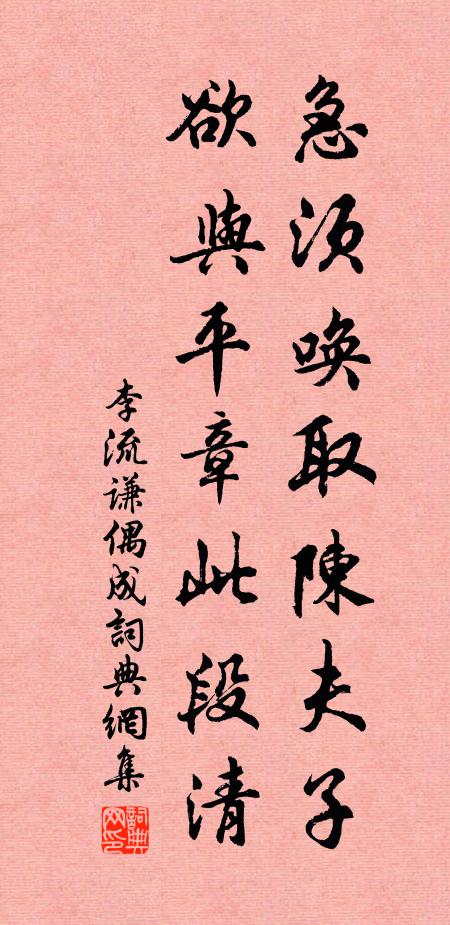 急须唤取陳夫子
欲與平章此段清
李流谦偶成詞典網集
詞典网印